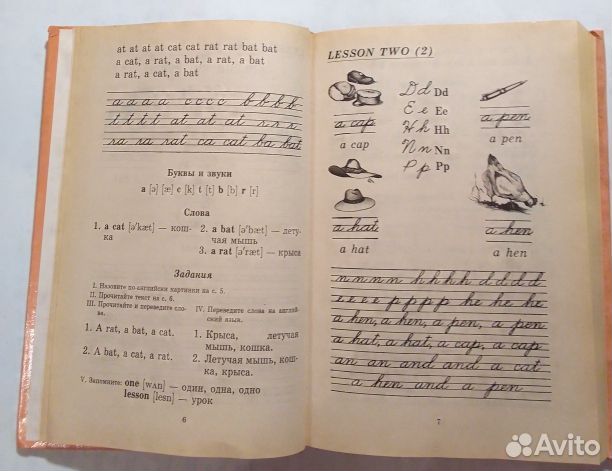 at at at at cat cat rat rat bat bat
a cat, a rat, a bat, a rat, a bat
a rat, a cat, a bat
a a a a c c c c b b b b
t t t t at at at r r r
ra ra rat ca cat ba bat
Буквы и звуки
a [ə] [æ] c [k] t [t] b [b] r [r]
Слова
1. a cat [ə'kæt] — кош-
ка
2. a bat [ə'bæt] — лету-
чая мышь
3. a rat [ə'ræt] — крыса
Задания
I. Назовите по-английски картинки на с. 5.
II. Прочитайте текст на с. 6.
III. Прочитайте и переведите сло-
ва.
1. A rat, a bat, a cat.
2. A bat, a cat, a rat.
IV. Переведите слова на англий-
ский язык.
1. Крыса, летучая
мышь, кошка.
2. Летучая мышь, кош-
ка, крыса.
V. Запомните: one [wʌn] — один, одна, одно
lesson [lesn] — урок
6
LESSON TWO (2)
a cap
a cap
a hat
a hat
Dd Dd
Ee Ee
Hh Hh
Nn Nn
Pp Pp
a pen
a pen
a hen
a hen
n n n n h h h h d d d d
e e e e p p p p he he he
a hen, a hen, a pen, a pen
a hat, a hat, a cap, a cap
an an and and a cat
a hen and a pen
7
Avito